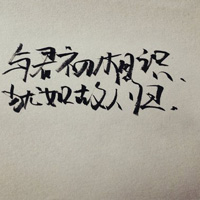 与君初相识、
犹如故人归.